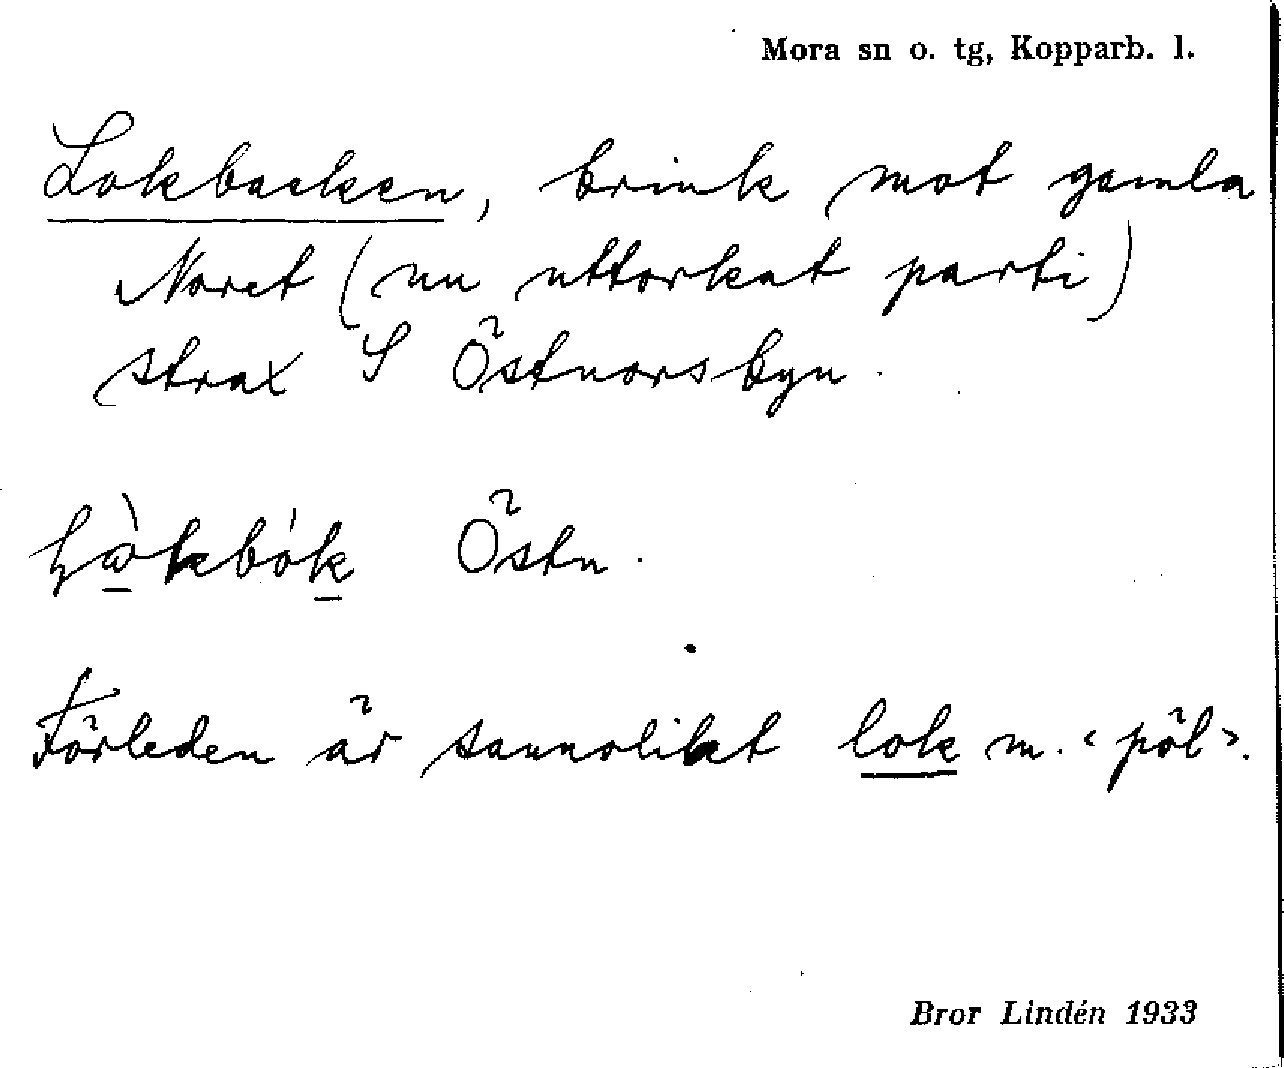 Mora sn o. tg, Kopparb. l.
Lokbacken, brink mot gamla
Noret (nu uttorkat parti)
strax S Östnorsbyn.
Östn.
Förleden är sannolikt lok m. ‹pöl›.
Bror Lindén 1933